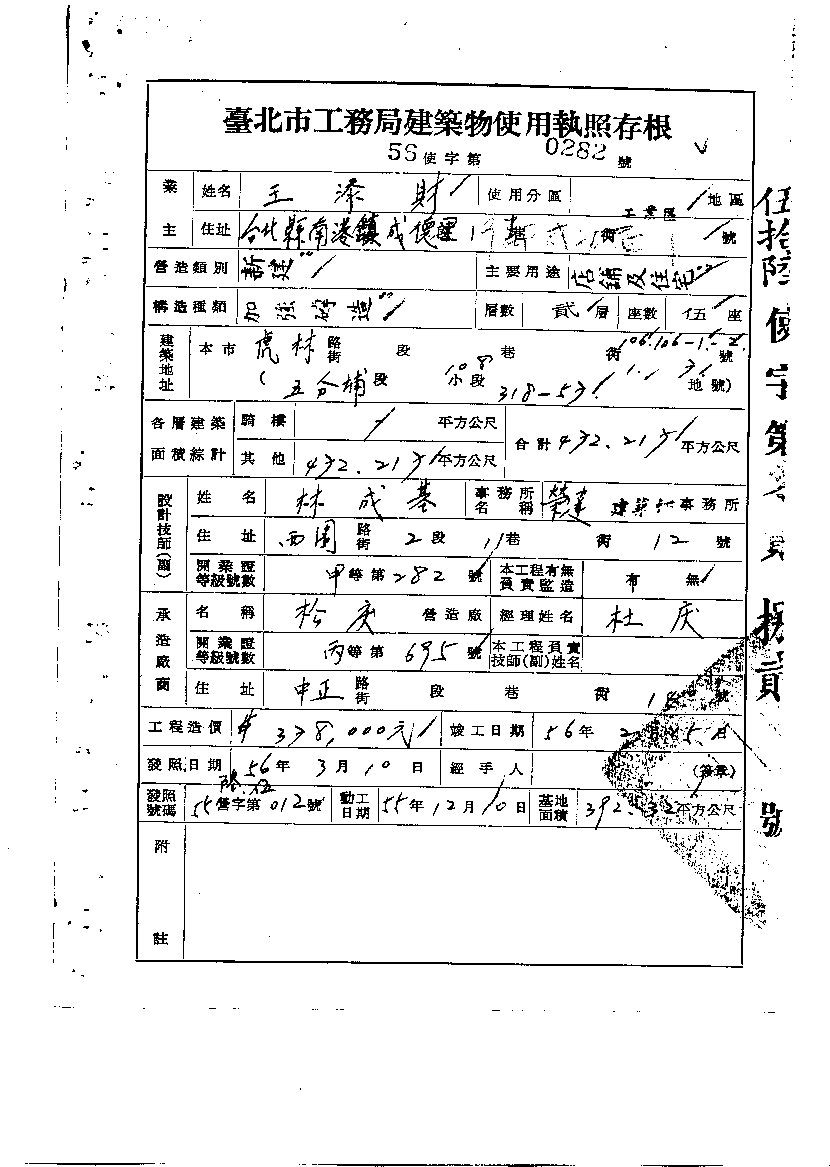 臺北市工務局建築物使用執照存根
56使字第0282號
業主 姓名 王添財 使用分區 工業區 地區
住址 台北縣南港鎮成德里 號
營造類別 新建 主要用途 店鋪及住宅
構造種類 加強磚造 層數 貳層 座數 伍座
建築地址 本市 虎林 路街 段 巷 街 號
(五分埔段 小段 318-53 地號)
各層建築面積綜計 騎樓 平方公尺 合計 432.21 平方公尺
其他 432.21 平方公尺
設計技師(副) 姓名 林成基 事務所名稱 榮建 建築師事務所
住址 西園 路街 2段 11巷 街 12號
開業證等級號數 甲等第282號 本工程有無負責監造 有 無
承造廠商 名稱 松慶 營造廠 經理姓名 杜慶
開業證等級號數 丙等第695號 本工程負責技師(副)姓名
住址 中正 路街 段 巷 街 號
工程造價 $338,000元 竣工日期 56年 日
發照日期 56年3月10日 經手人 (簽章)
發照號碼 55營字第012號 動工日期 55年12月10日 基地面積 392.32平方公尺
附註
伍拾陸使字第零貳捌貳號